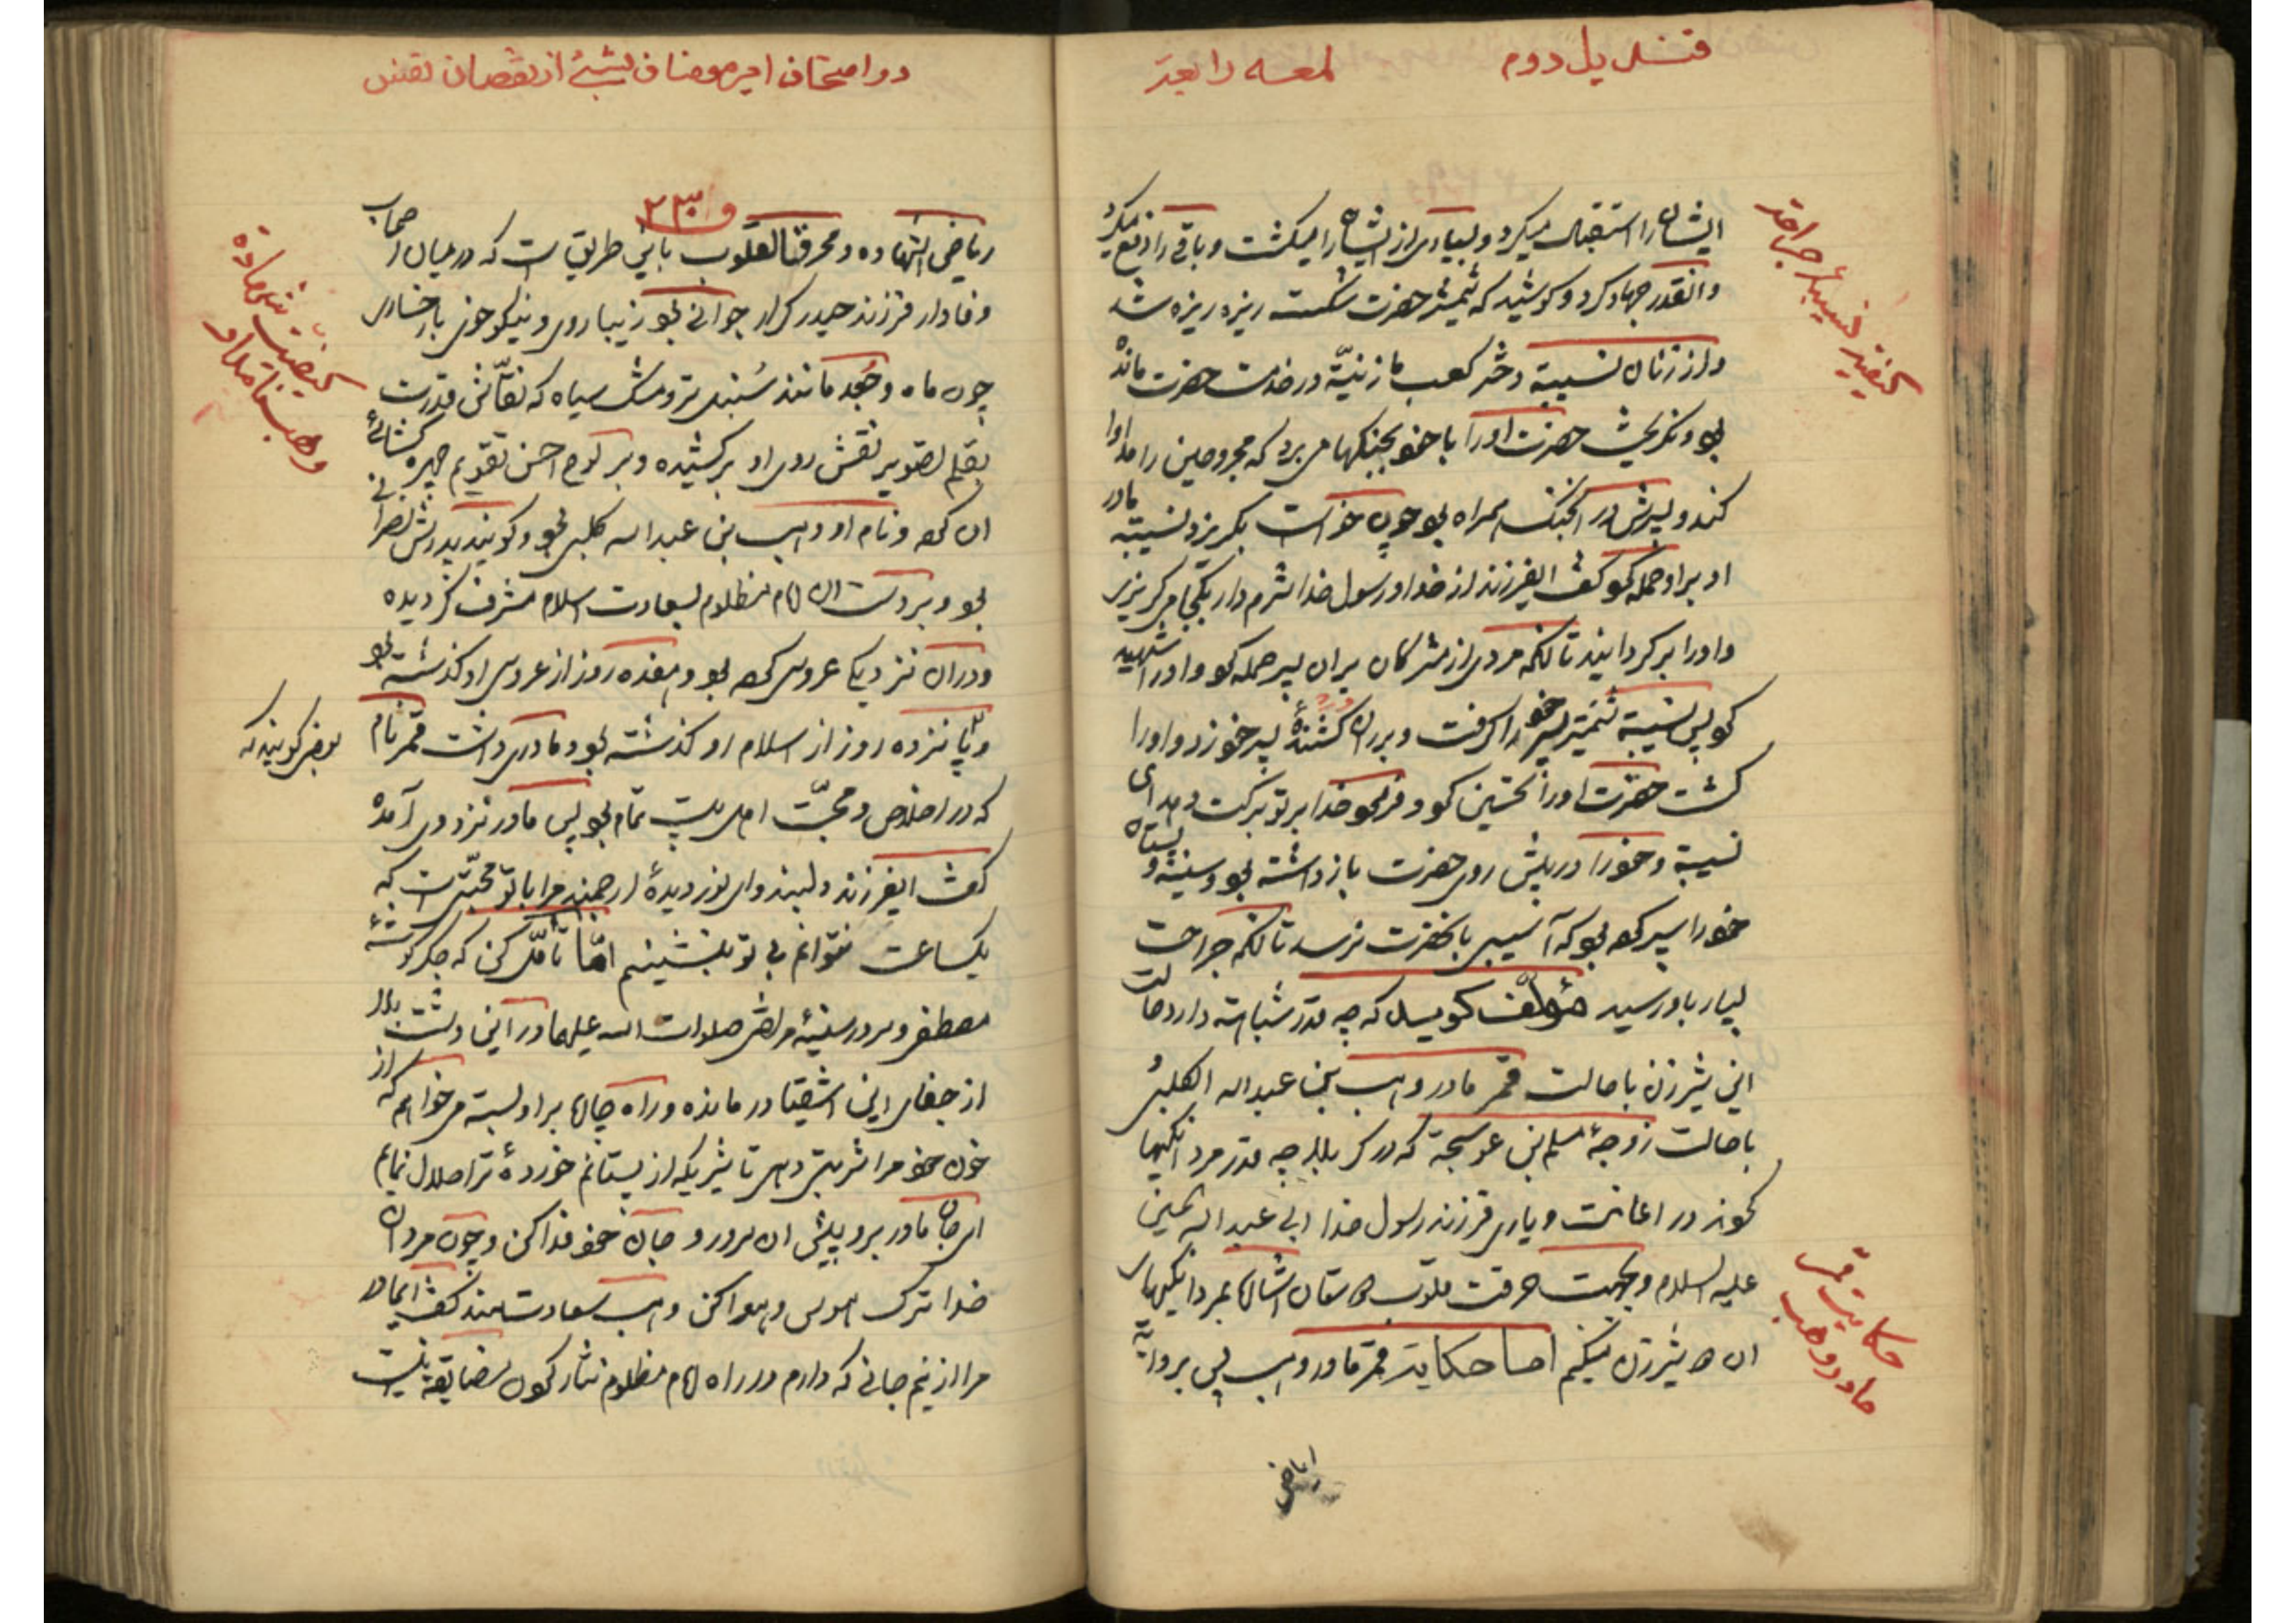 قندیل دوم
لمعه رابعة
ایشانرا استقبال میکرد و بسیاری از ایشانرا میکشت و باقی را دفع میکرد
وانقدر جهاد کرد و کوشید که شمشیر حضرت شکست ریزه ریزه شد
و از زنان نسیبة دختر کعب مازنیّة در خدمت حضرت مانده
بود و نکریخت حضرت اورا با خود بجنکها می برد که مجروحین را مداوا
کند و پسرش در انجنک همراه بود چون خواست بکریزد نسیبة مادر
او براو حمله کرد کفت ایفرزند از خدا و رسول خدا شرم دار بکجا میکریزی
و اورا برکردانید تا آنکه مردی از مشرکان بران پسر حمله کرد و اورا شهید
کرد پس نسیبة شمشیر پسر خود را کرفت و بران کشندهٔ پسر خود زد و اورا
کشت حضرت اورا تحسین کرد و فرمود خدا بر تو برکت دهد ای
نسیبة و خود را در پیش روی حضرت بازداشته بود و سینه و پستان
خود را سپر کرده بود که آسیبی بانحضرت نرسد تا آنکه جراحت
بسیار باو رسید مؤلف کوید که چه قدر شباهت دارد حالت
این شیر زن باحالت قمر مادر وهب بن عبداله الکلبی
باحالت زوجهٔ مسلم بن عوسجة که در کربلا چه قدر مردانکیها
نمودند در اعانت و یاری فرزند رسول خدا ابی عبداله الحسین
علیه السلام و بجهت حرقت قلوب دوستان اشاره بمردانکیهای
ان دو شیرزن میکنم اما حکایت قمر مادر وهب پس بروایة
ریاض
کیفیت نسیبهٔ جراحة
حکایت قمر
مادر وهب
در امتحان امیرمومنان بشیء از نقصان نفس
۲۳۰
ریاض الشهاده و محرق القلوب باین طریق است که در میان اصحاب
وفادار فرزند حیدر کرار جوانی بود زیبا روی و نیکو خوی با رخساری
چون ماه و جُعد مانند سُنبل تر و مشک سیاه که نقّاش قدرت
بقلم تصویر نقش روی او برکشیده و بر لوح احسن تقویم چهره کشائی
ان کرده و نام او وهب بن عبداله کلبی بود و کویند پدرش نصرانی
بود و بر دست ان امام مظلوم بسعادت اسلام مشرف کردیده
ودران نزدیکی عروسی کرده بود و هفده روز از عروسی او کذشته بود
و پانزده روز از اسلام او کذشته بود و مادری داشت قمر نام
که در اخلاص و محبّت اهل بیت تمام بود پس مادر نزد وی آمده
کفت ایفرزند دلبند و ای نور دیدهٔ ارجمند مرا با تو محبّتی است که
یکساعت نتوانم بی تو بنشینم امّا تأمّل کن که جکر کوشهٔ
مصطفی و سرور سینهٔ مرتضی صلوات الله علیهما در این دشت بلا
از جفای این اشقیا در مانده و راه چاره براو بسته می خواهم که از
خون خود مرا شربتی دهی تا شیریکه از پستانم خوردهٔ ترا حلال نمایم
ای جان مادر برو پیش ان سرور و جان خود فدا کن و چون مردان
خدا ترک هوس و هوا کن وهب سعادتمند کفت ایمادر
مرا از نیم جانی که دارم در راه امام مظلوم نثار کردن مضایقه نیست
کیفیت شهادة
وهب با مادر او
بعضی کویند که